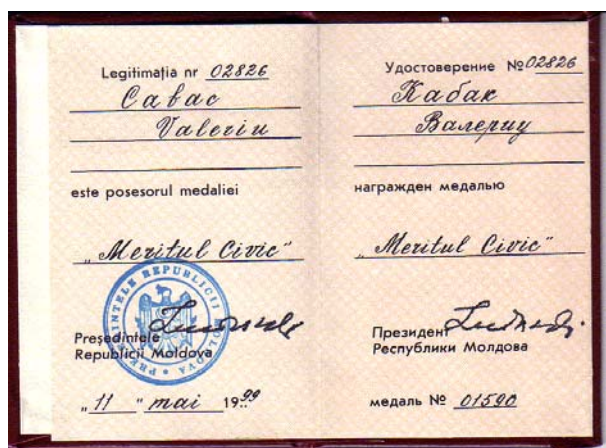 Legitimația nr 02826
Cabac
Valeriu
este posesorul medaliei
„Meritul Civic"
PREȘEDINTELE REPUBLICII MOLDOVA
Președintele
Republicii Moldova
„11" mai 1999
Удостоверение №02826
Кабак
Валериу
награжден медалью
„Meritul Civic"
Президент
Республики Молдова
медаль № 01590